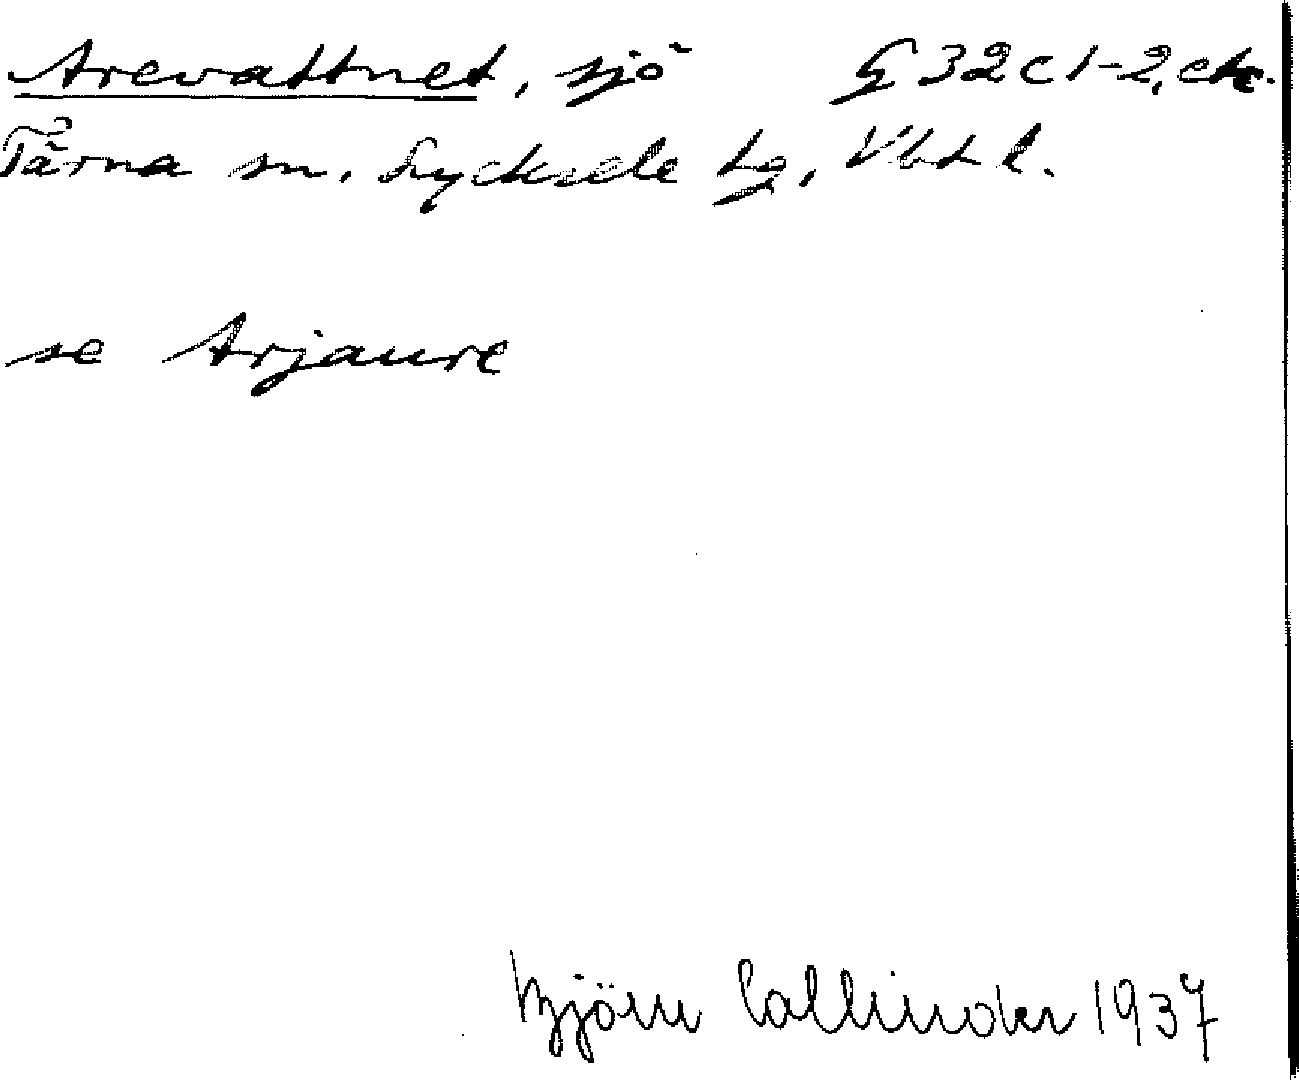 Arevattnet, sjö G 32 c 1-2, etc.
Tärna sn. Lycksele lg, Vbtl.
se Arjaure
Björn Collinder 1937